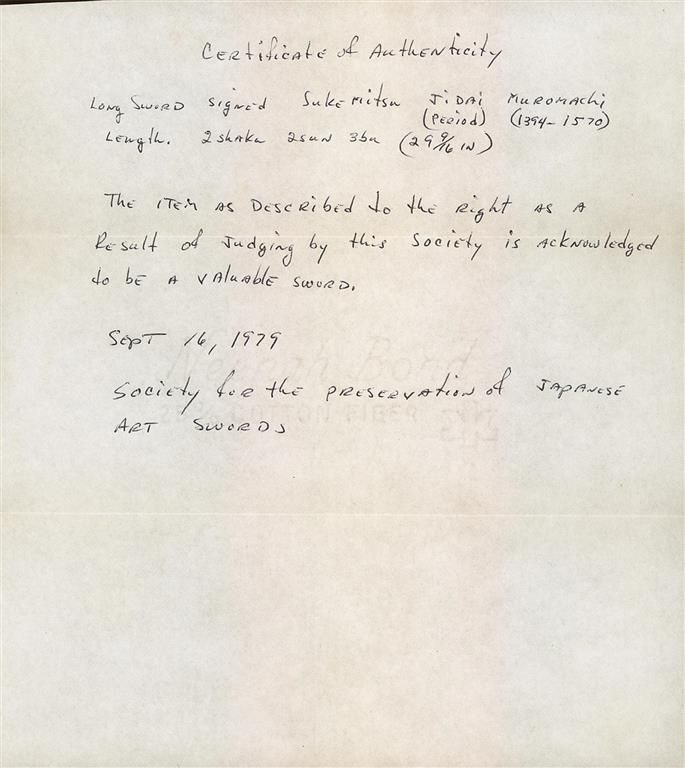 Certificate of Authenticity
Long Sword signed Sukemitsu Jidai Muromachi
(Period) (1394-1570)
Length. 2 shaku 2 sun 3 bu (29 9/16 in)
The item as described to the right as a
Result of Judging by this Society is acknowledged
to be a valuable sword.
Sept 16, 1979
Society for the preservation of Japanese
Art Swords